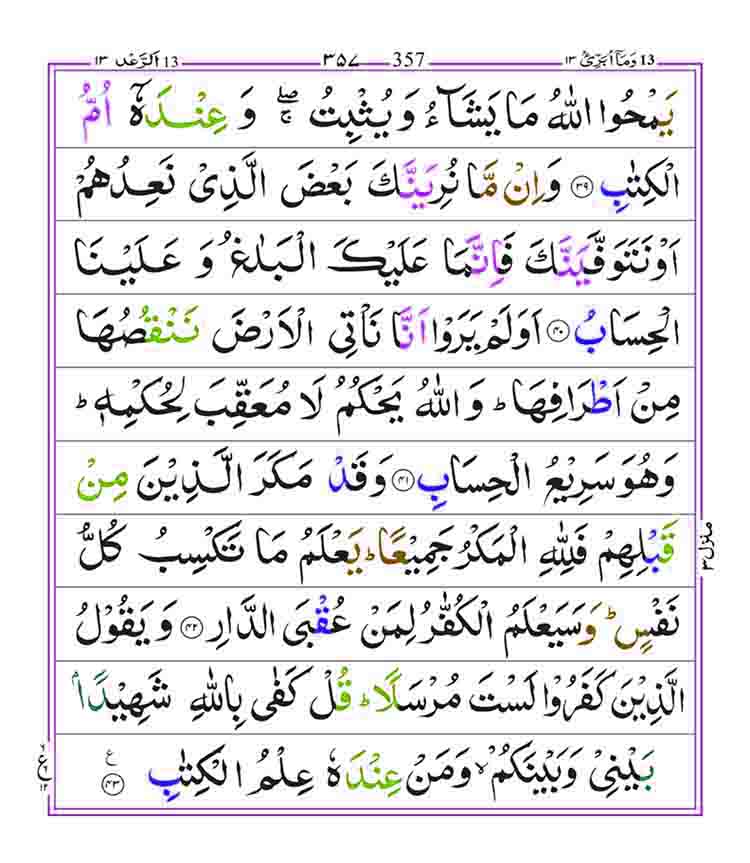 وَمَاۤ اُبَرِّئُ ١٣ 13 357 ٣٥٧ اَلرَّعْد ١٣ 13
يَمْحُوا اللّٰهُ مَا يَشَآءُ وَ يُثْبِتُ ۖۚ وَ عِنْدَهٗۤ اُمُّ
الْكِتٰبِ ﴿٣٩﴾ وَاِنْ مَّا نُرِيَنَّكَ بَعْضَ الَّذِىْ نَعِدُهُمْ
اَوْ نَتَوَفَّيَنَّكَ فَاِنَّمَا عَلَيْكَ الْبَلٰغُ وَ عَلَيْنَا
الْحِسَابُ ﴿٤٠﴾ اَوَلَمْ يَرَوْا اَنَّا نَاْتِى الْاَرْضَ نَنْقُصُهَا
مِنْ اَطْرَافِهَا ؕ وَ اللّٰهُ يَحْكُمُ لَا مُعَقِّبَ لِحُكْمِهٖ ؕ
وَهُوَ سَرِيْعُ الْحِسَابِ ﴿٤١﴾ وَقَدْ مَكَرَ الَّذِيْنَ مِنْ
قَبْلِهِمْ فَلِلّٰهِ الْمَكْرُ جَمِيْعًا ؕ يَعْلَمُ مَا تَكْسِبُ كُلُّ
نَفْسٍ ؕ وَ سَيَعْلَمُ الْكُفّٰرُ لِمَنْ عُقْبَى الدَّارِ ﴿٤٢﴾ وَ يَقُوْلُ
الَّذِيْنَ كَفَرُوْا لَسْتَ مُرْسَلًا ؕ قُلْ كَفٰى بِاللّٰهِ شَهِيْدًاۢ
بَيْنِىْ وَ بَيْنَكُمْ ۙ وَمَنْ عِنْدَهٗ عِلْمُ الْكِتٰبِ ﴿٤٣﴾ ع
منزل ٣
ع ١٢